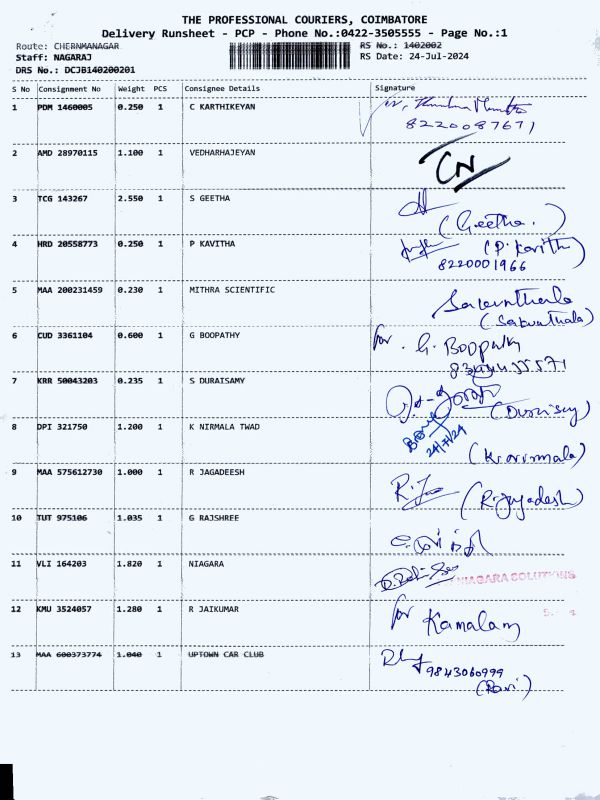 THE PROFESSIONAL COURIERS, COIMBATORE
Delivery Runsheet - PCP - Phone No.:0422-3505555 - Page No.:1
Route: CHERNMANAGAR
RS No.: 1402002
Staff: NAGARAJ
RS Date: 24-Jul-2024
DRS No.: DCJB140200201
S No Consignment No Weight PCS Consignee Details Signature
1 PDM 1460005 0.250 1 C KARTHIKEYAN
8220087671
2 AMD 28970115 1.100 1 VEDHARHAJEYAN
CN
3 TCG 143267 2.550 1 S GEETHA
(Geetha.)
4 HRD 20558773 0.250 1 P KAVITHA
(P. Kavitha)
8220001966
5 MAA 200231459 0.230 1 MITHRA SCIENTIFIC
Sakunthala
(Sakunthala)
6 CUD 3361104 0.600 1 G BOOPATHY
for. G. Boopathy
7 KRR 50043203 0.235 1 S DURAISAMY
8 DPI 321750 1.200 1 K NIRMALA TWAD
24/7/24
9 MAA 575612730 1.000 1 R JAGADEESH
(R. Jagadesh)
10 TUT 975106 1.035 1 G RAJSHREE
11 VLI 164203 1.820 1 NIAGARA
NIAGARA SOLUTIONS
12 KMU 3524057 1.280 1 R JAIKUMAR
for Kamalam
13 MAA 600373774 1.040 1 UPTOWN CAR CLUB
9843060999
(Ravi)